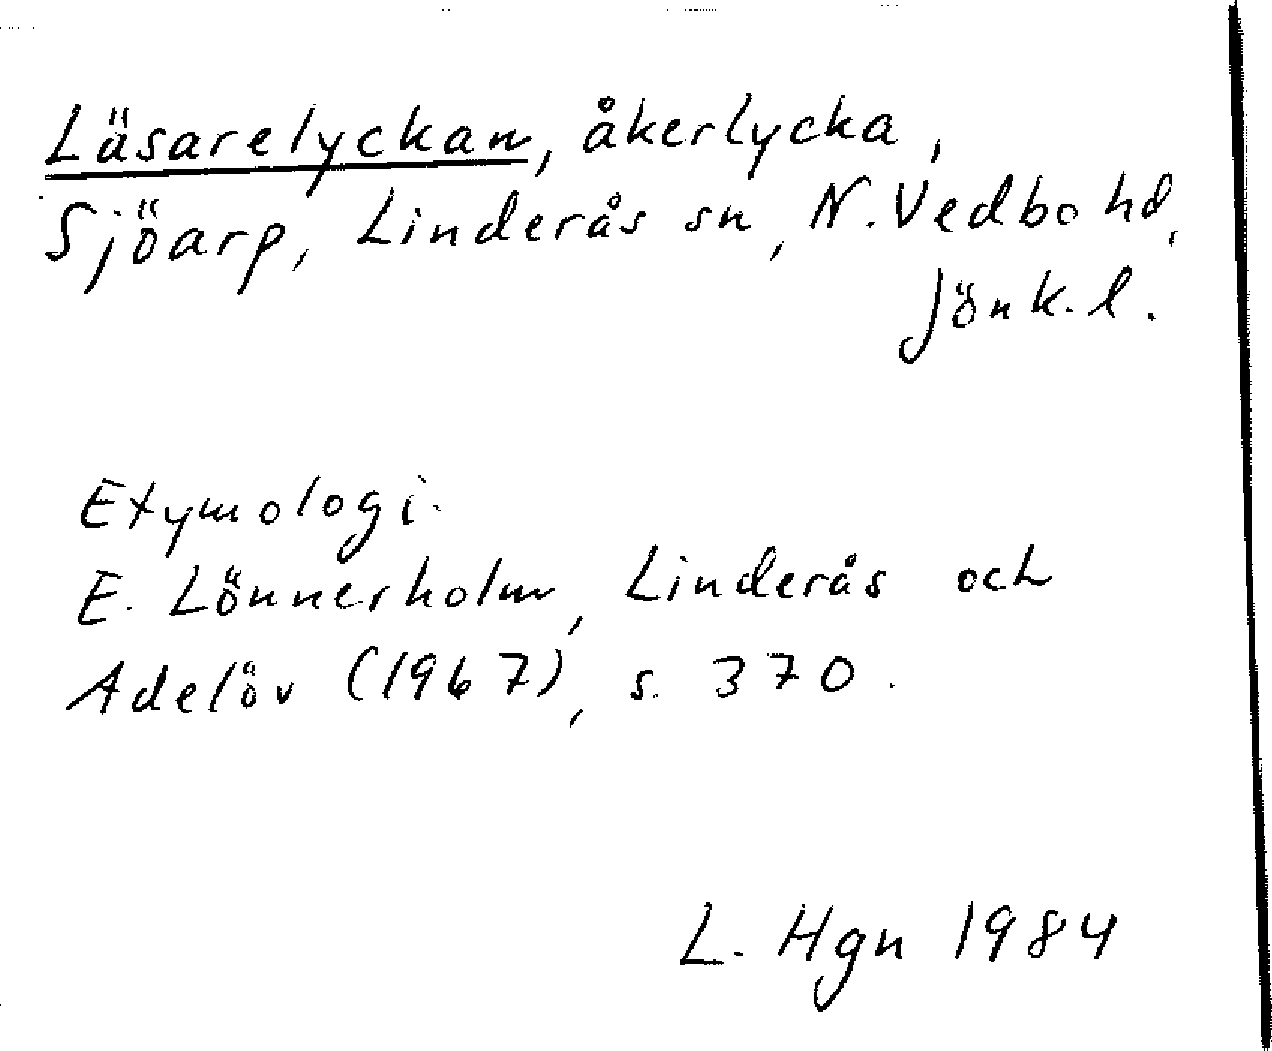 Läsarelyckan, åkerlycka,
Sjöarp, Linderås sn, N. Vedbo hd,
Jönk. l.
Etymologi.
E. Lönnerholm, Linderås och
Adelöv (1967), s. 370.
L. Hgn 1984